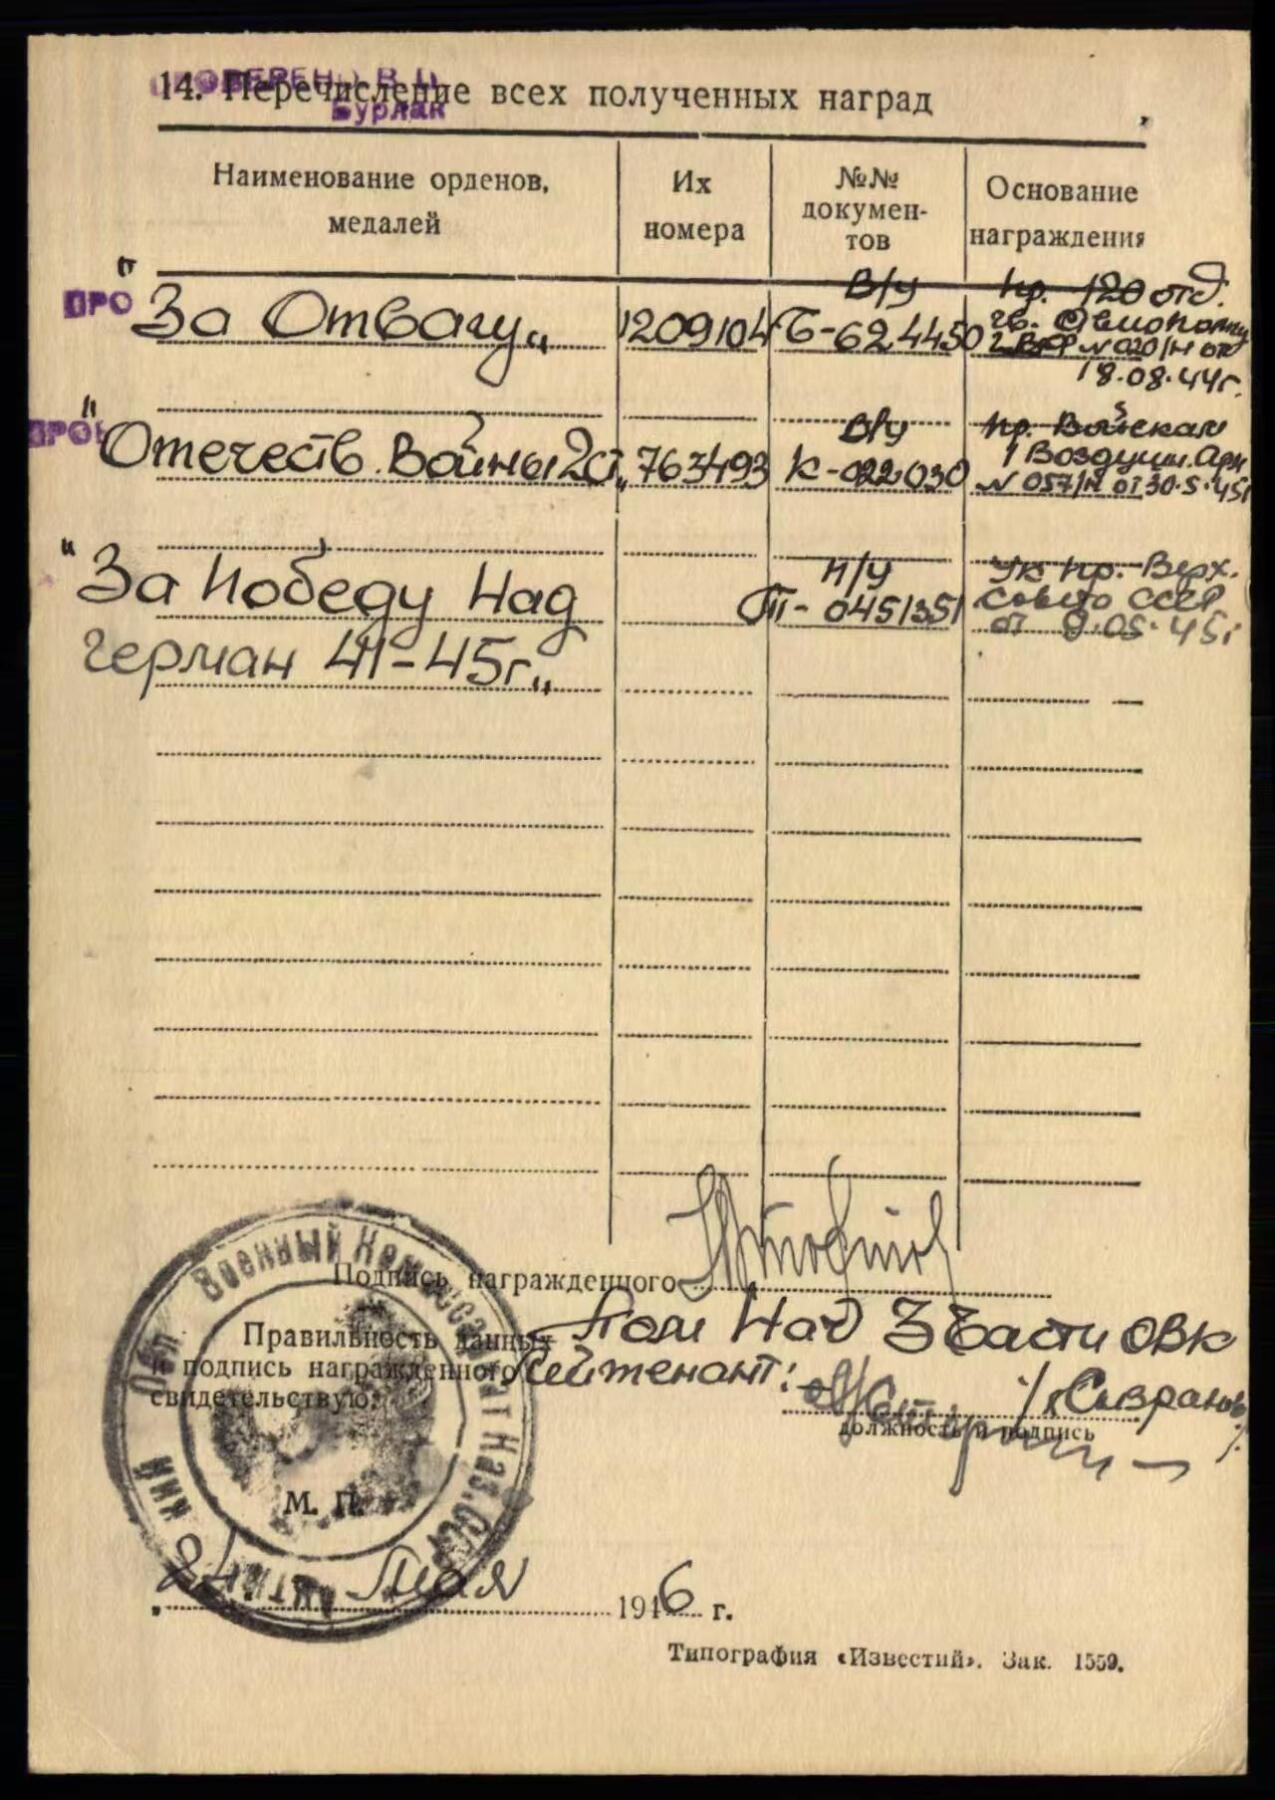 ПРОВЕРЕНО В Ц
Бурлак
14. Перечисление всех полученных наград
Наименование орденов, медалей
Их номера
№№ докумен-
тов
Основание
награждения
ПРО
"За Отвагу„
1209104
В/у
Б-624450
пр. 120 отд.
гв. Авиополку
№ 020/Н от
18.08.44г.
ПРО
"Отечеств. Войны 2 ст„
763493
В/у
К-022030
пр. Войскам
1 Воздушн. Арм
№ 057/Н от 30.5.45г
"За Победу Над
герман 41-45г.„
П/у
П-0451351
Ук пр. Верх.
Совета СССР
от 9.05.45г
Подпись награжденного
Правильность данных
и подпись награжденного
свидетельствую:
Пом Нач 3 Части ОВК
Лейтенант:
должность и подпись
Военный Комиссариат Каз.ССР
Обл
М. П.
24 Мая 1946 г.
Типография «Известий». Зак. 1559.